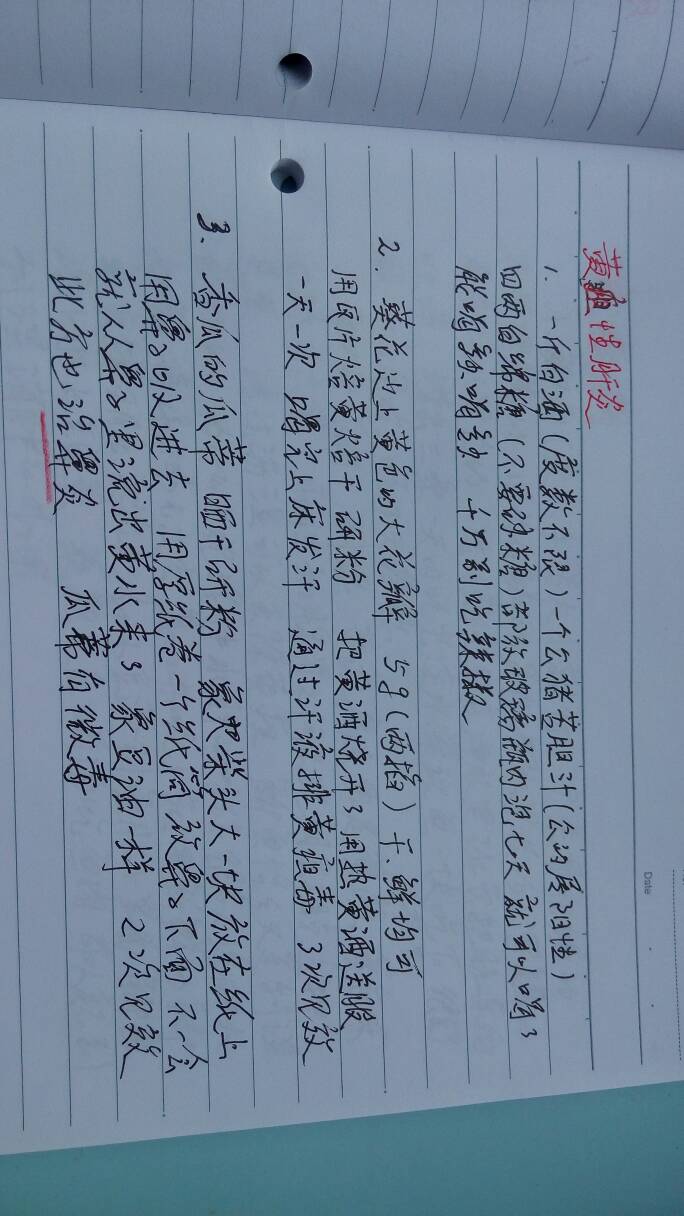 黄疸性肝炎
1. 一斤白酒(度数不限)一个公猪苦胆汁(公的属阳性)
四两白绵糖(不要砂糖)都放玻璃瓶内泡七天 就可以喝了
能喝多少喝多少 千万别吃辣椒
2. 葵花边上黄色的大花瓣 5g(两捏)干、鲜均可
用瓦片焙黄焙干研粉 把黄酒烧开了用热黄酒送服
一天一次 喝完上床发汗 通过汗液排黄疸毒 3次见效
3. 香瓜的瓜蒂 晒干研粉 象火柴头大一块放在纸上
用鼻子吸进去 用厚纸卷一个纸筒 放鼻子下面 不一会
就从鼻子里流出黄水来了 象豆油一样 2次见效
此方也治鼻炎 瓜蒂有微毒
Date